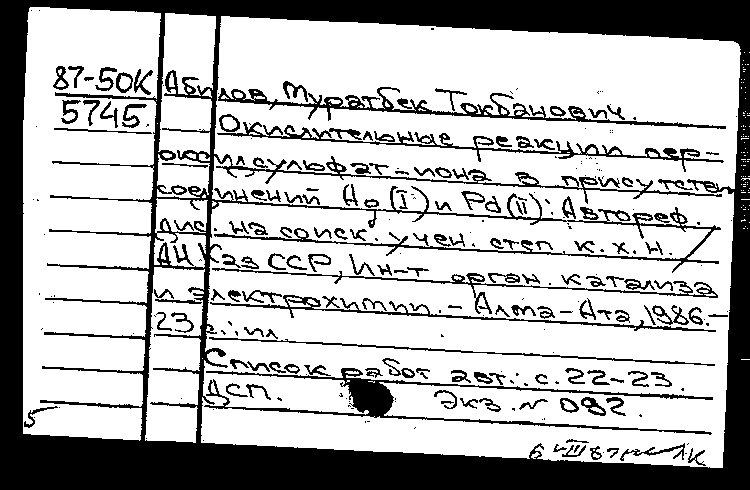 87-50К Абилов, Муратбек Токбанович.
5745. Окислительные реакции пер-
оксидсульфат-иона в присутствии
соединений Ag(I) и Pd(II): Автореф.
дис. на соиск. учен. степ. к. х. н. /
АН КазССР, Ин-т орган. катализа
и электрохимии. - Алма-Ата, 1986. -
23 с.: ил.
Список работ авт.: с. 22-23.
ДСП. Экз. № 082.
5
6 VIII 87